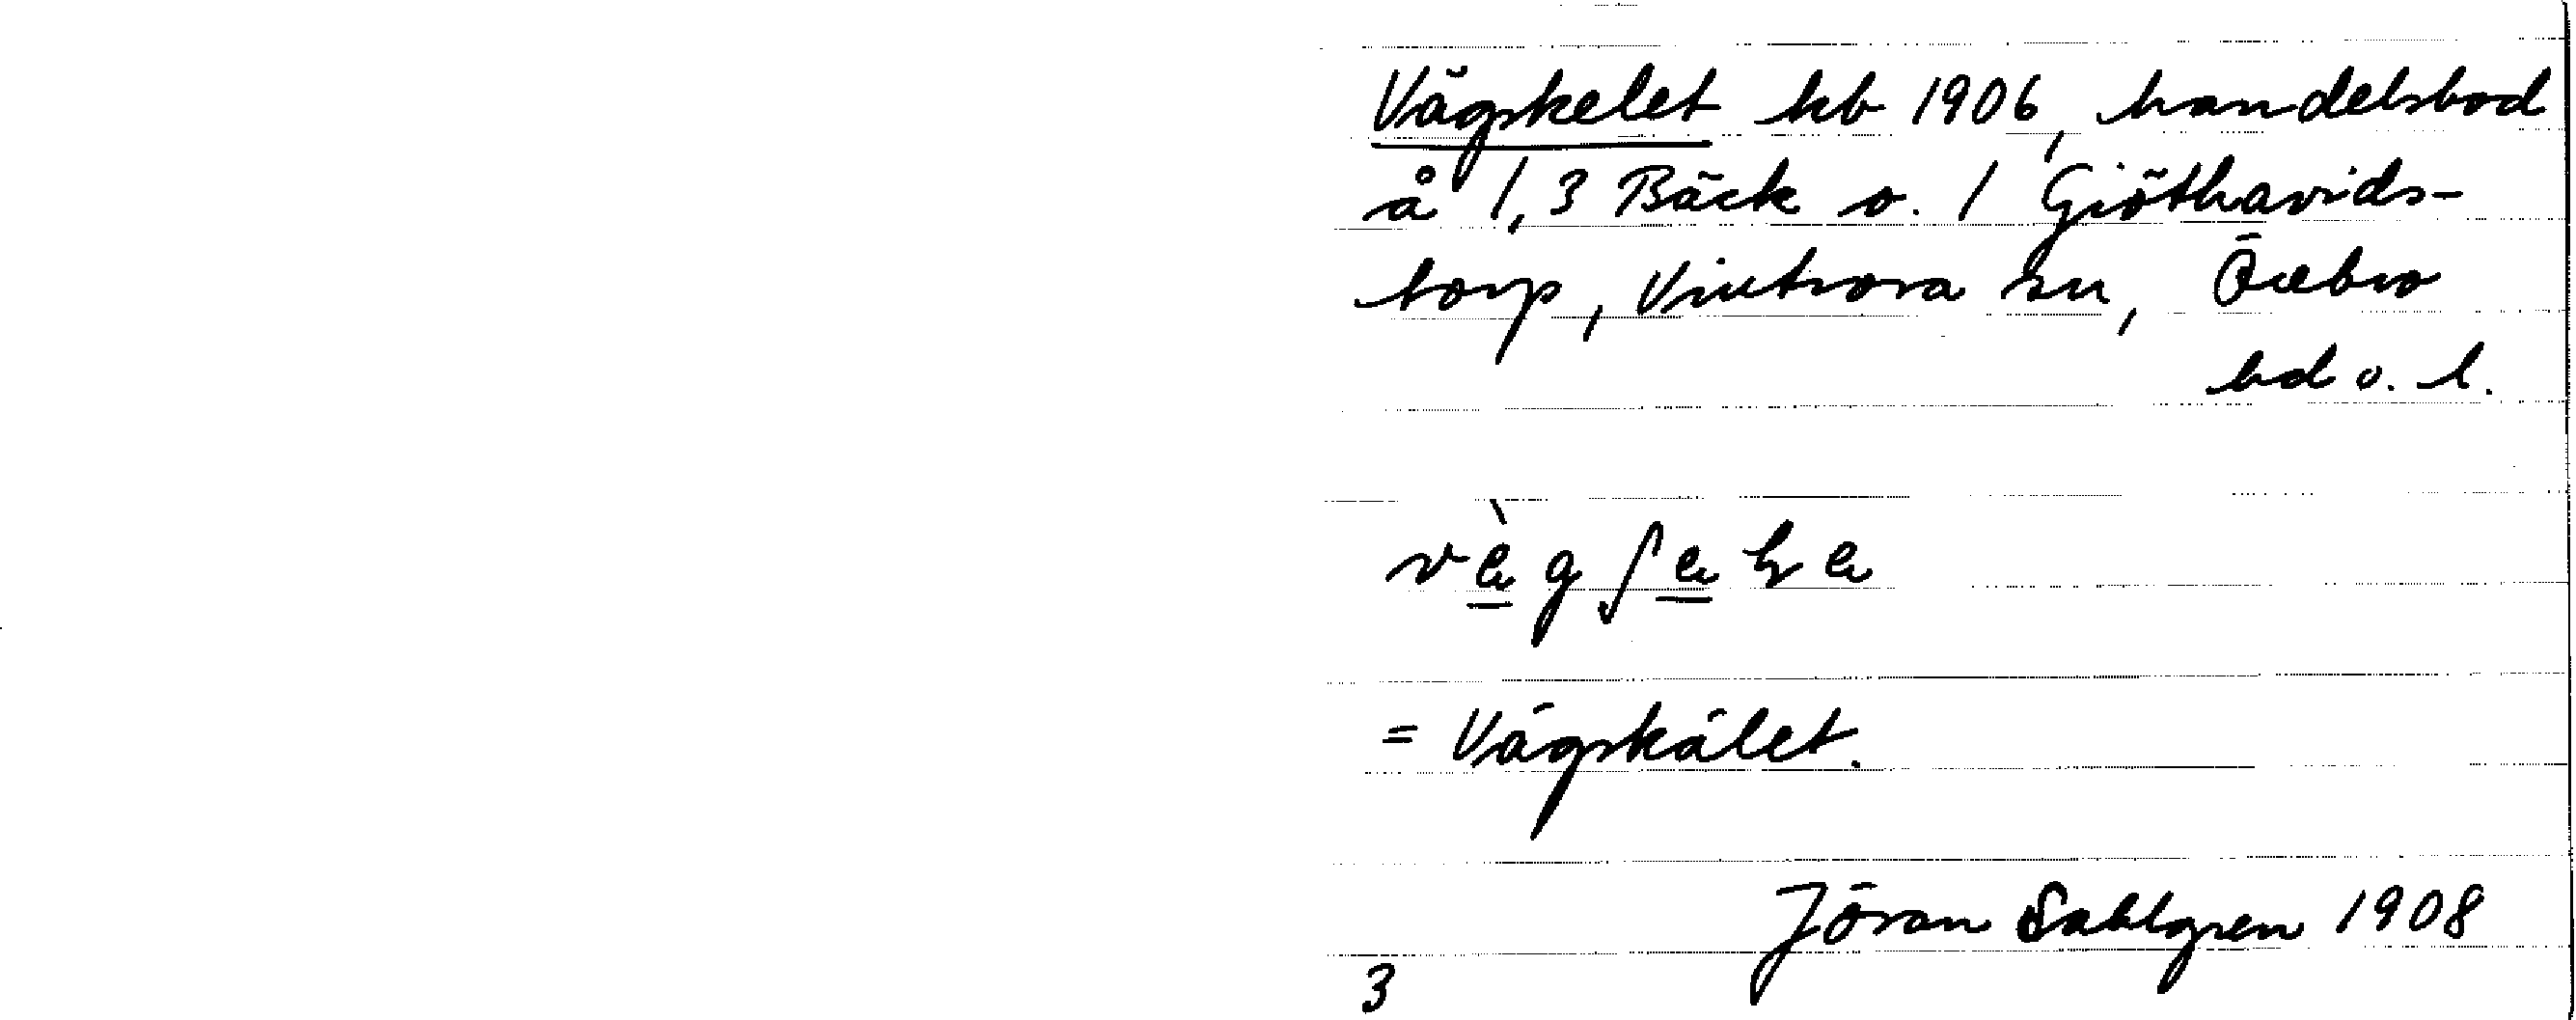 Vägskelet kb 1906, handelsbod
å 1,3 Bäck o. 1 Giöthavids-
torp, Vintrosa sn, Örebro
hd o. l.
= Vägskälet.
Jöran Sahlgren 1908
3